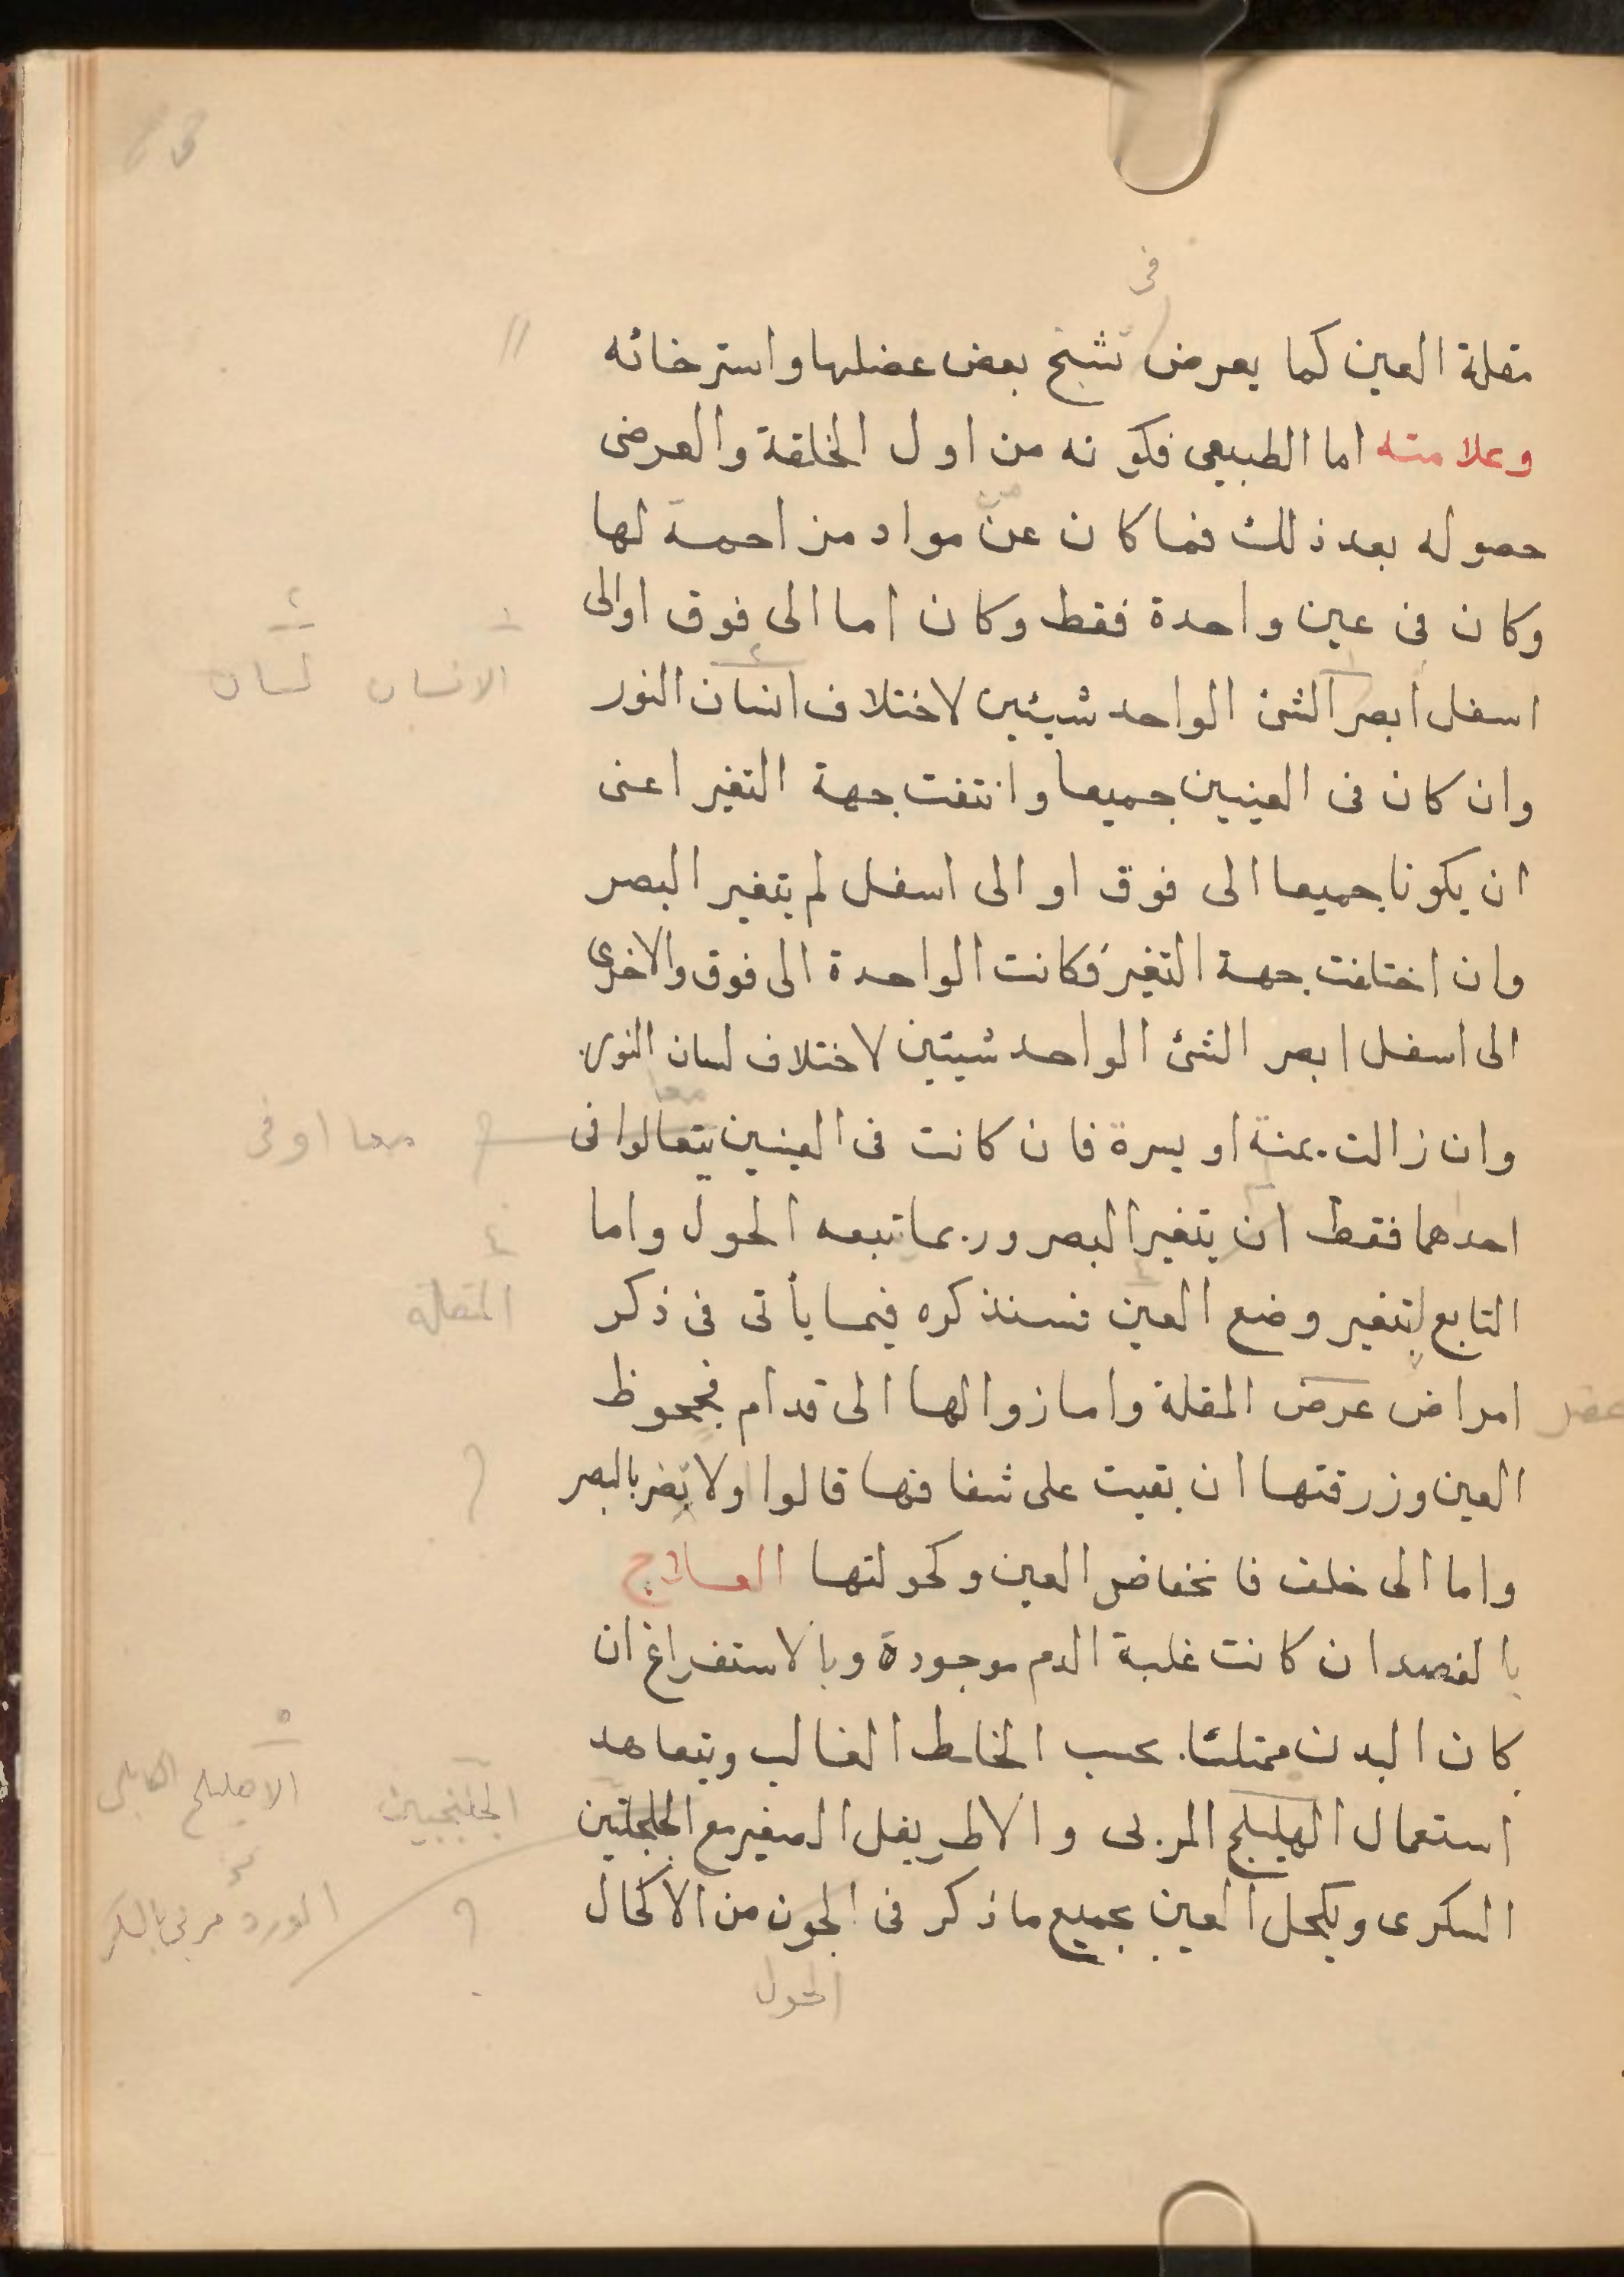 فى
مقلة العين كما يعرض تشنج بعض عضلها واسترخائه
وعلامته اما الطبيعى فكونه من اول الخلقة والعرضى
حصوله بعد ذلك فما كان عن مواد مزاحمة لها
وكان فى عين واحدة فقط وكان اما الى فوق اوالى
١ ٢
اسفل ابصر الشئ الواحد شيئين لاختلاف انسان النور
الانسان لسان
وان كان فى العينين جميعا واتتفت جهة التغير اعنى
ان يكونا جميعا الى فوق او الى اسفل لم يتغير البصر
وان اختلفت جهة التغير فكانت الواحدة الى فوق والاخرى
الى اسفل ابصر الشئ الواحد شيئين لاختلاف لسان النور
معا
وان زالت يمنة او يسرة فان كانت فى العينين يتعالوا فى
معا او فى
احدهما فقط ان يتغير البصر وربما تبعه الحول واما
٤
التابع لتغير وضع العين فسنذكره فيما يأتى فى ذكر
المقلة
امراض عرض المقلة واما زوالها الى قدام فجحوظ
عضل
العين وزرقتها ان بقيت على شفافها قالوا ولا تضر بالبصر
واما الى خلف فانخفاض العين وكحولتها العلاج
بالفصد ان كانت غلبة الدم موجودة وبالاستفراغ ان
كان البدن ممتلئا بحسب الخلط الغالب ويتعاهد
٥
استعمال الهليلج المربى والاطريفل الصغير مع الجلجلتين
الجلنجبين الاهليلج الكابلى
السكرى ويكحل العين بجميع ما ذكر فى الجون من الاكحال
الورد مربى بالسكر
الحول